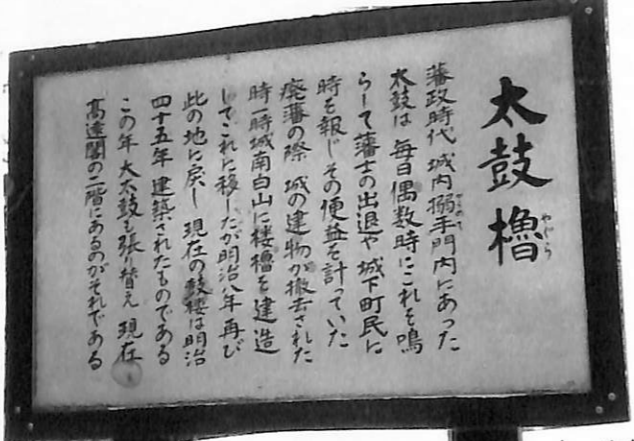 太鼓櫓
やぐら
藩政時代 城内搦手門内にあった
からめて
太鼓は 毎日偶数時にこれを鳴
らして藩士の出退や 城下町民に
時を報じその便益を計っていた
廃藩の際 城の建物が撤去された
時一時城南白山に楼櫓を建造
してこれに移したが明治八年再び
此の地に戻し 現在の鼓楼は明治
四十五年 建築されたものである
この年 大太鼓も張り替え 現在
高遠閣の二階にあるのがそれである